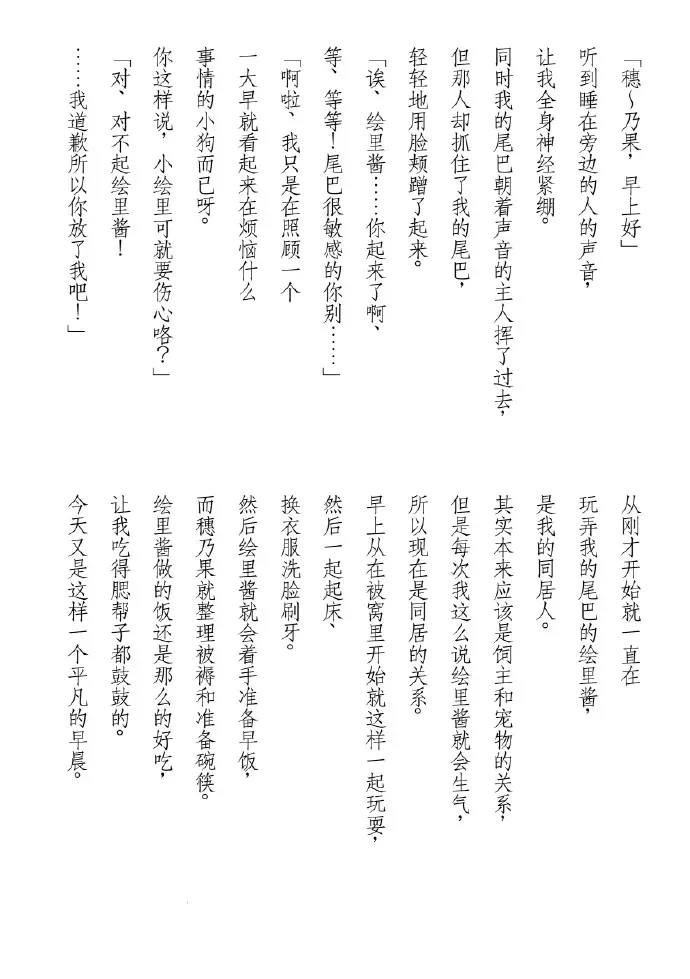 「穗～乃果，早上好」
听到睡在旁边的人的声音，
让我全身神经紧绷。
同时我的尾巴朝着声音的主人挥了过去，
但那人却抓住了我的尾巴，
轻轻地用脸颊蹭了起来。
「诶、绘里酱……你起来了啊、
等、等等！尾巴很敏感的你别……」
「啊啦、我只是在照顾一个
一大早就看起来在烦恼什么
事情的小狗而已呀。
你这样说，小绘里可就要伤心咯？」
「对、对不起绘里酱！
……我道歉所以你放了我吧！」
从刚才开始就一直在
玩弄我的尾巴的绘里酱，
是我的同居人。
其实本来应该是饲主和宠物的关系，
但是每次我这么说绘里酱就会生气，
所以现在是同居的关系。
早上从在被窝里开始就这样一起玩耍，
然后一起起床、
换衣服洗脸刷牙。
然后绘里酱就会着手准备早饭，
而穗乃果就整理被褥和准备碗筷。
绘里酱做的饭还是那么的好吃，
让我吃得腮帮子都鼓鼓的。
今天又是这样一个平凡的早晨。